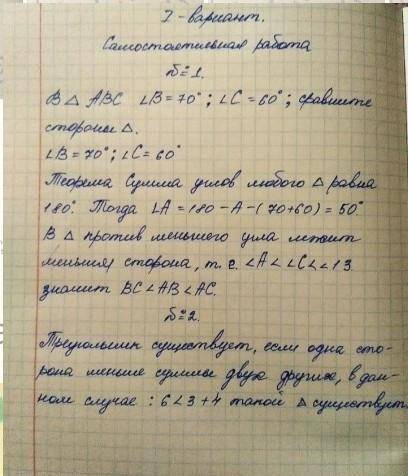 I-вариант.
Самостоятельная работа
№1.
В △ ABC ∠B=70°; ∠C=60°; сравните
стороны △.
∠B=70°; ∠C=60°
Теорема Сумма углов любого △ равна
180°. Тогда ∠A=180-A-(70+60)=50°
В △ против меньшего угла лежит
меньшая сторона, т.е. ∠A<∠C<∠B.
значит BC<AB<AC.
№2.
Треугольник существует, если одна сто-
рона меньше суммы двух других, в дан-
ном случае: 6<3+4 такой △ существует.